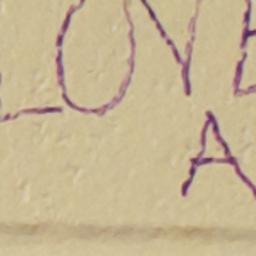 LOVE
A